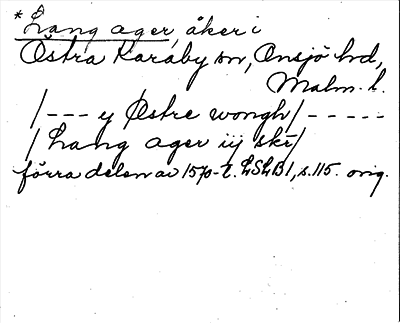 * Lang ager, åker i
Östra Karaby sn, Onsjö hd,
Malm. l.
/ - - - y Østre wongh / - - - - -
/ Lang ager iij skr /
förra delen av 1570-t. LSLB1, s. 115. orig.